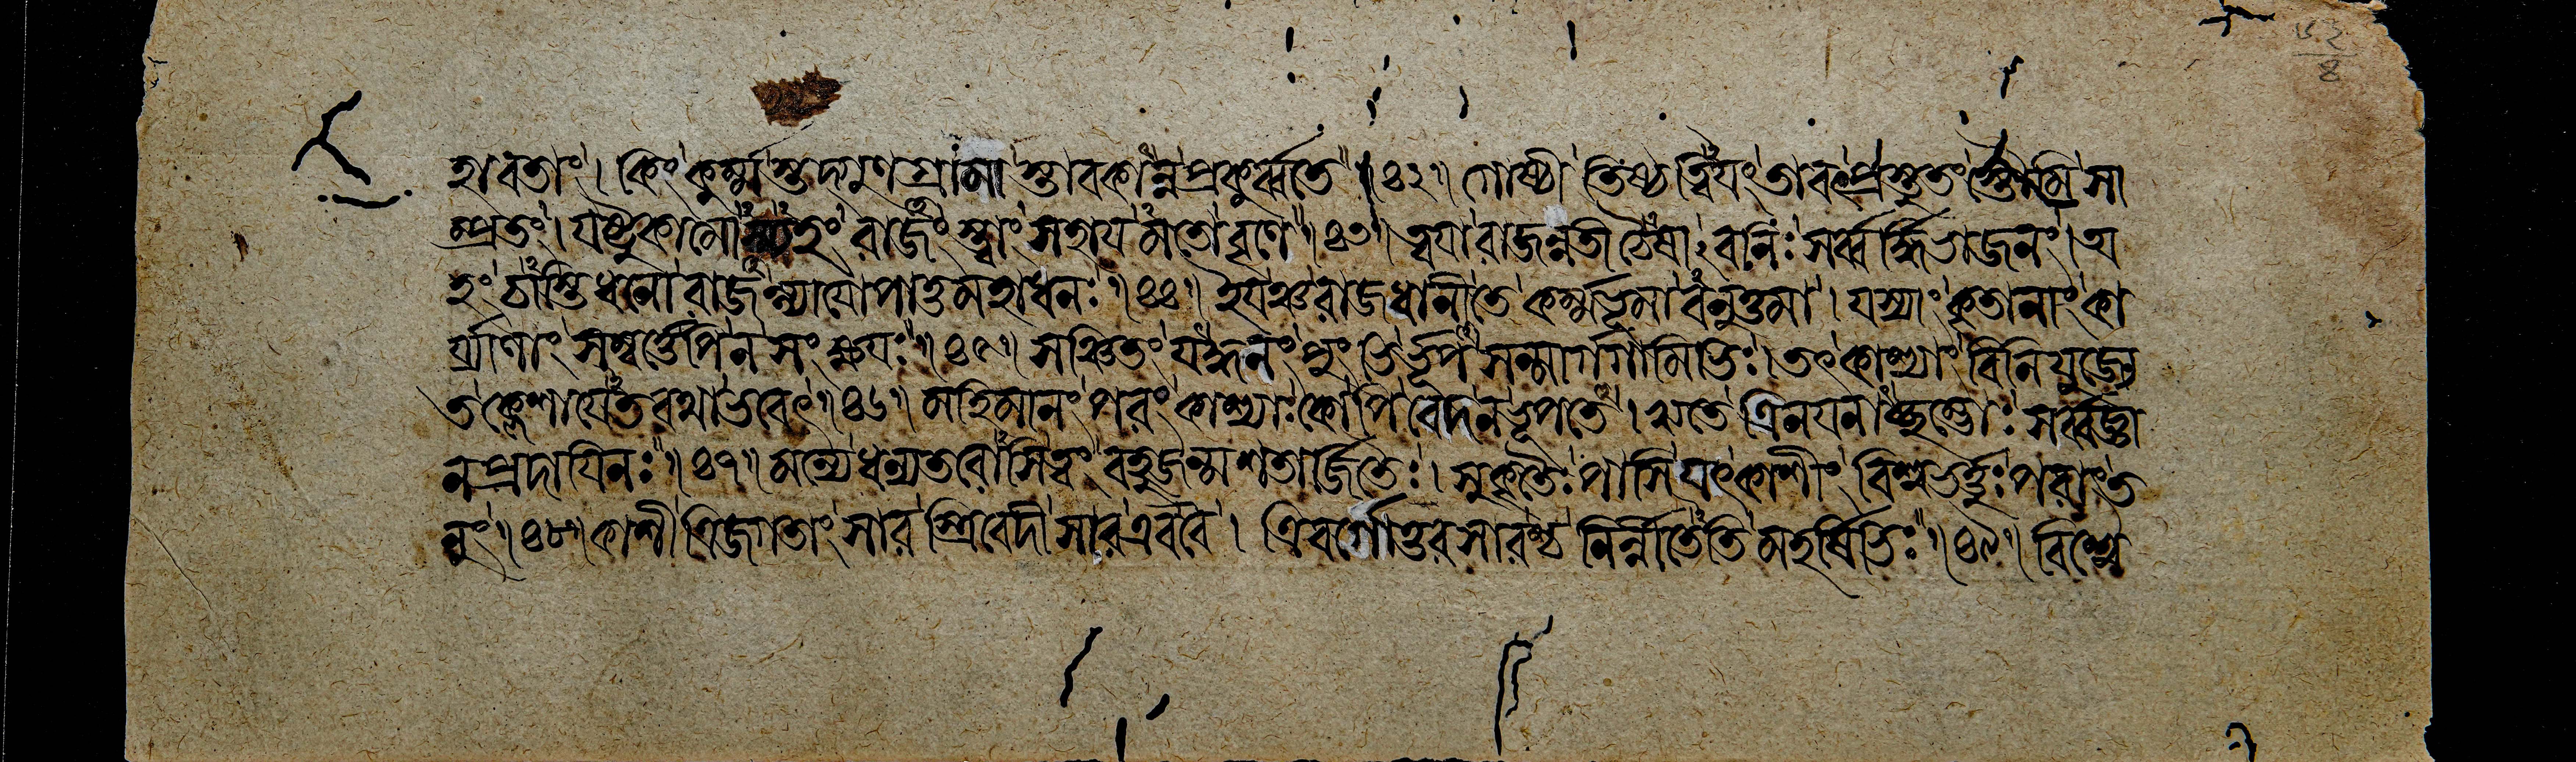 হাবতাং। কিং কুর্ম্মস্তদ্গুণগ্রামা স্তাবকান্নপ্রকুর্ব্বতে ॥৪২॥ গোষ্ঠী তিষ্ঠত্বিয়ং তাবৎপ্রস্তুতং স্তৌমি সা
ম্প্রতং। যষ্টুকামোস্ম্যহং রাজংস্ত্বাং সহায়মতো বৃণে ॥৪৩॥ ত্বয়া রাজন্বতী চৈষাঽবনিঃ সর্ব্বর্দ্ধিভাজনং। অ
হং চাস্তিধনো রাজন্ন্যায়োপাত্তমহাধনঃ ॥৪৪॥ ইয়ঞ্চ রাজধানী তে কর্ম্মভূমাবনুত্তমা। যস্যাং কৃতানাং কা
র্য্যাণাং সম্বর্ত্তেপি ন সংক্ষয়ঃ ॥৪৫॥ সঞ্চিতং যদ্ধনং পুংভির্ভূপ সন্মার্গগামিভিঃ। তৎকাশ্যাং বিনিযুজ্যে
ত ক্লেশায়েতরথা ভবেৎ ॥৪৬॥ মহিমানং পরং কাশ্যাঃ কোপি বেদ ন ভূপতে। ঋতে ত্রিনয়নাচ্ছম্ভোঃ সর্ব্বজ্ঞা
নপ্রদায়িনঃ ॥৪৭॥ মন্যে ধন্যতরোসি ত্বং বহুজন্মশতার্জিতৈঃ। সুকৃতৈঃ পাসি যৎকাশীং বিশ্বভর্ত্তুঃ পরাং ত
নুং ॥৪৮॥ কাশী ত্রিজগতাং সারস্ত্রিবেদীসার এব বৈ। ত্রিবর্গোত্তরসারশ্চ নির্ন্নীতেতি মহর্ষিভিঃ ॥৪৯॥ বিশ্বে